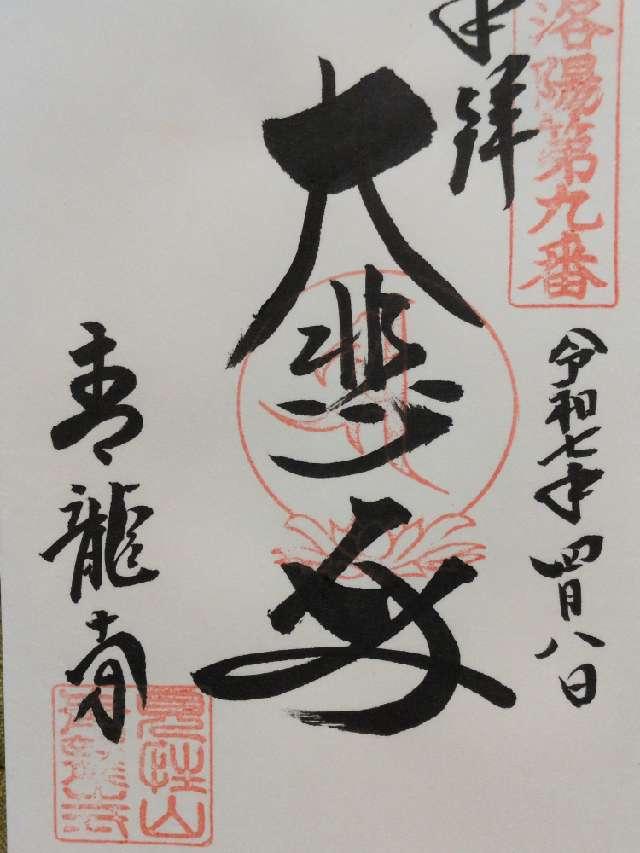 洛陽第九番
奉拝
令和七年四月八日
大悲殿
青龍寺
見性山
青龍寺